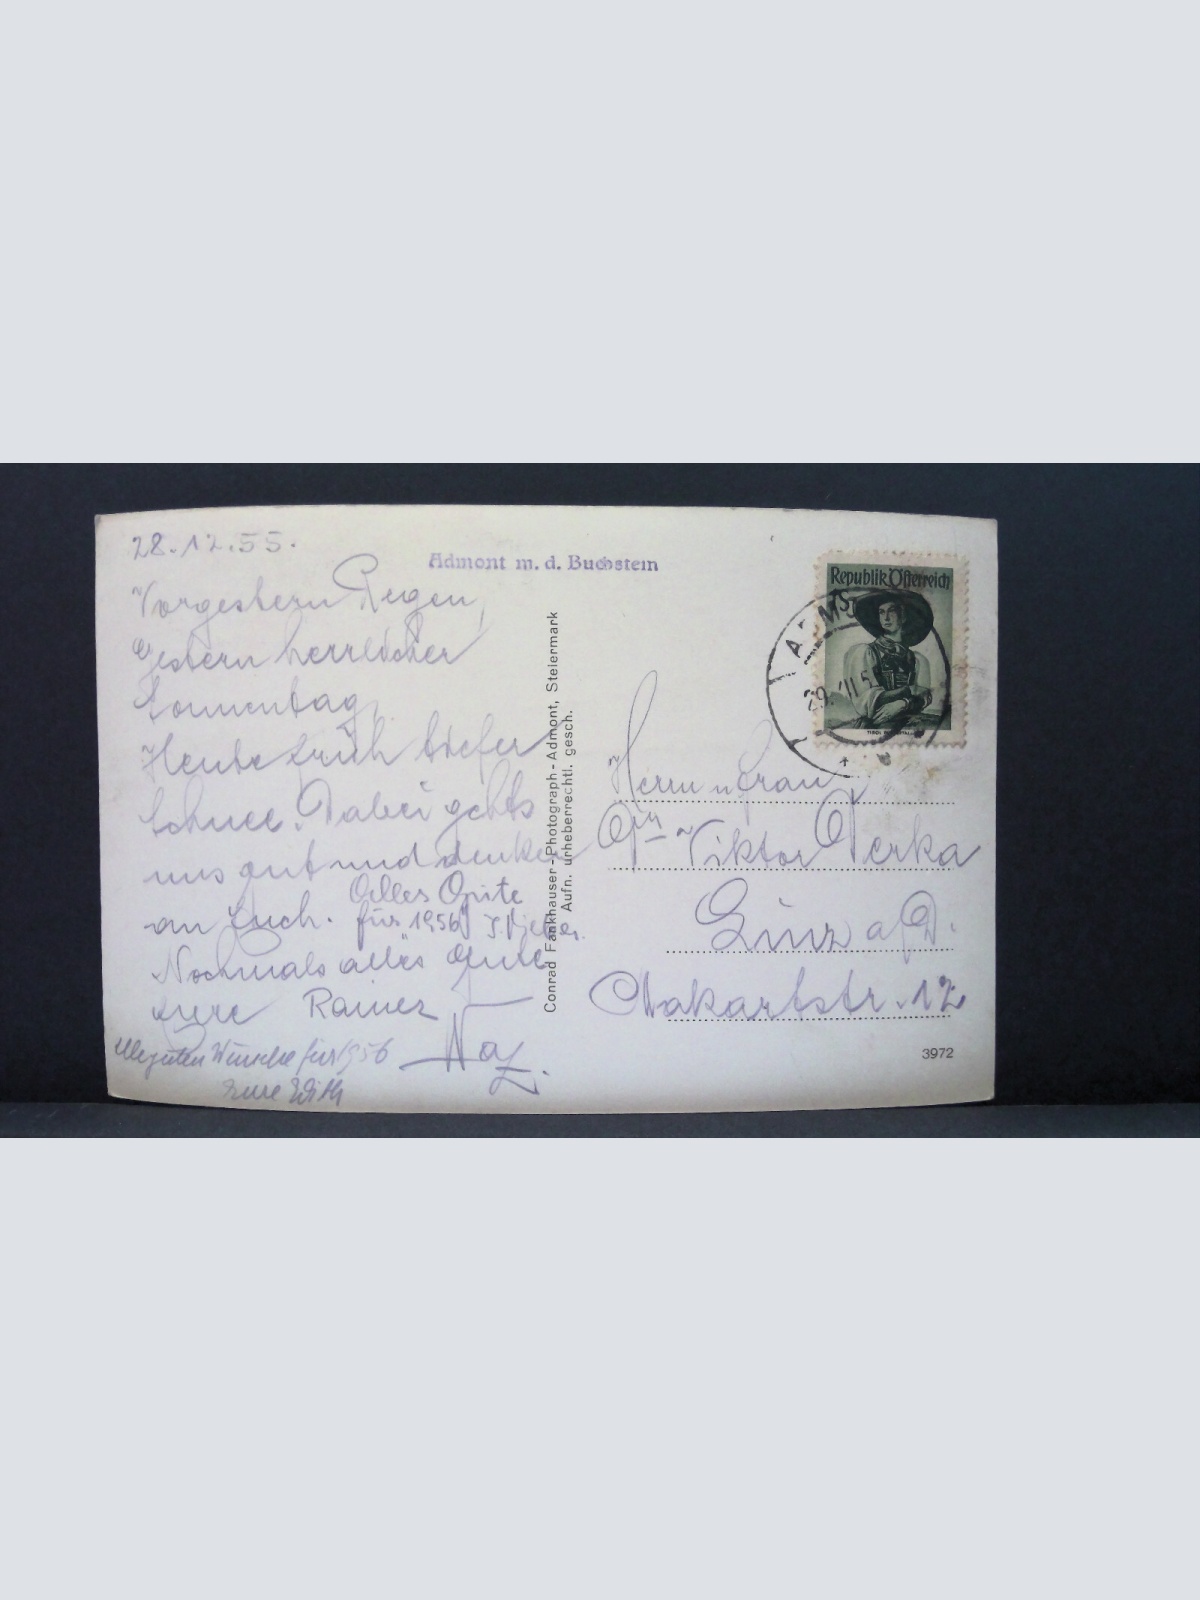 28.12.55.
Admont m. d. Buchstein
Vorgestern Regen,
Gestern herrlicher
Sonnentag,
Heute früh tiefer
Schnee. Dabei gehts
uns gut und denken
an Euch.
Alles Gute
für 1956
Nochmals alles Gute
Eure Rainer
Alle guten Wünsche für 1956
Eure Edith
Conrad Fankhauser-Photograph-Admont, Steiermark
Aufn. urheberrechtl. gesch.
Republik Österreich
Herrn u Frau
Viktor
Linz a/D.
Makartstr. 12
3972